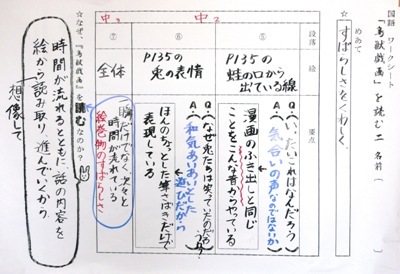 国語 ワークシート
「鳥獣戯画」を読む 二 名前(
めあて
すばらしさをくわしく
段落
絵
要点
中2
⑤
P135の
蛙の口から
出ている線
Q:(いったいこれはなんだろう)
A:(気合いの声なのではないか)
漫画のふき出しと同じ
ことをこんな昔からやっている
⑥
P135の
兎の表情
Q:(なぜ兎たちは笑っていたのだろうか)
A:(和気あいあいとした
遊びだから)
ほんのちょっとした筆さばきだけで
表現している
中3
⑦
全体
一瞬だけでなく、次々と
時間が流れている
絵巻物のすばらしさ
☆なぜ、『鳥獣戯画』を読むなのか?
時間が流れるとともに、話の内容を
絵から読み取り、進んでいくから
想像して